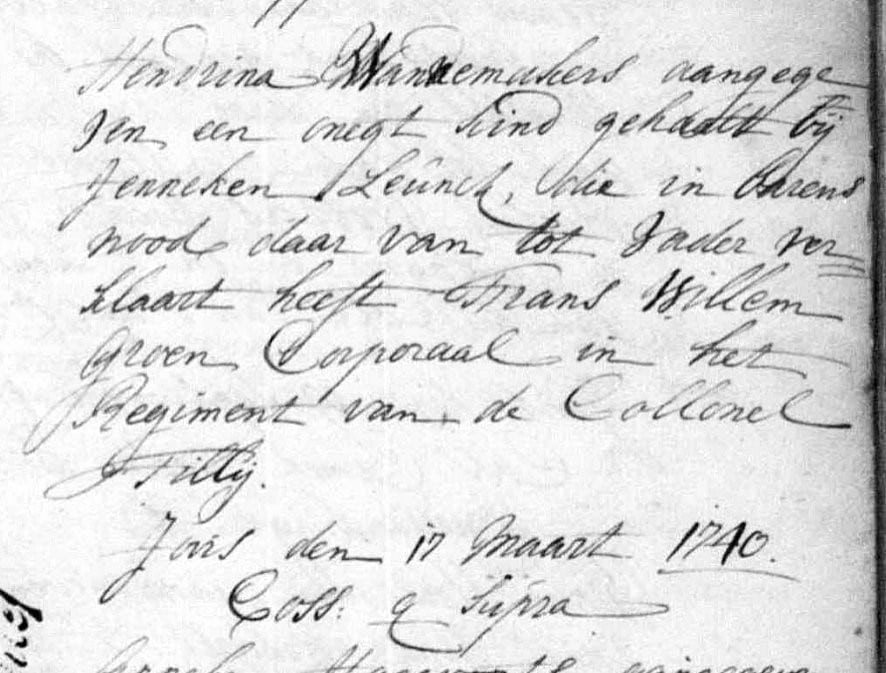 Hendrina Wannemakers aangege
ven een onegt kind gehaalt bij
Jenneken Leünck, die in barens
nood daar van tot vader ver=
klaart heeft Frans Willem
Groen Corporaal in het
Regiment van de Collonel
Tilly.
Jovis den 17 Maart 1740.
Coss: q Supra